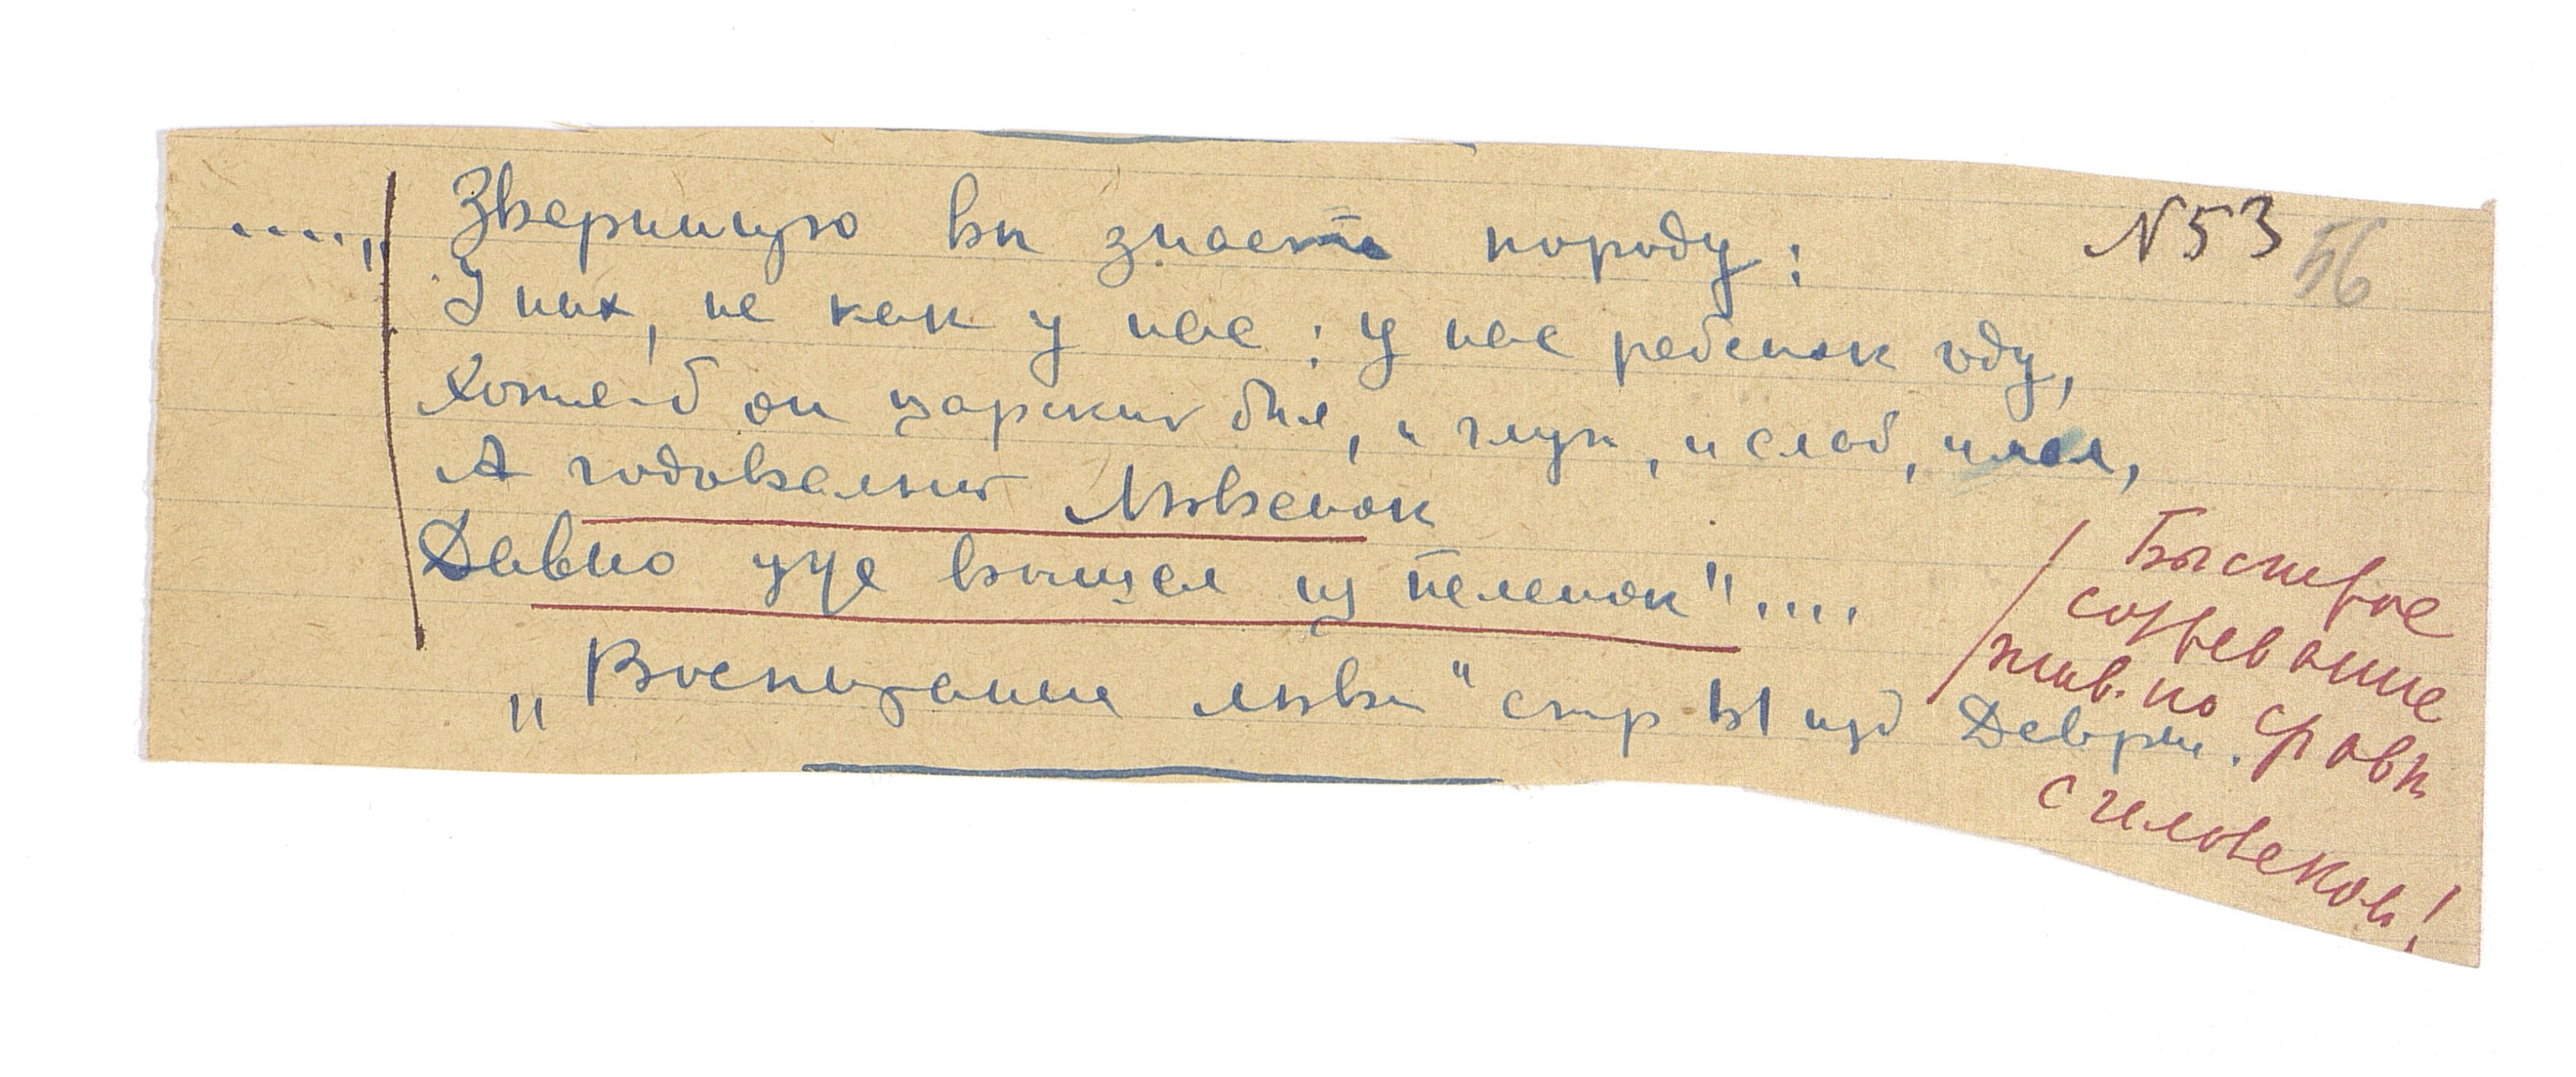 N53 56
....„Звериную вы знаете породу:
У них, не как у нас; у нас ребенок году,
Хотя-б он царский был, и глуп, и слаб, и мал,
А годовалый Львенок
Давно уже вышел из пеленок"....
„Воспитание льва" стр 61 изд Девриен.
Быстрое
созревание
жив. по сравн
с человеком!